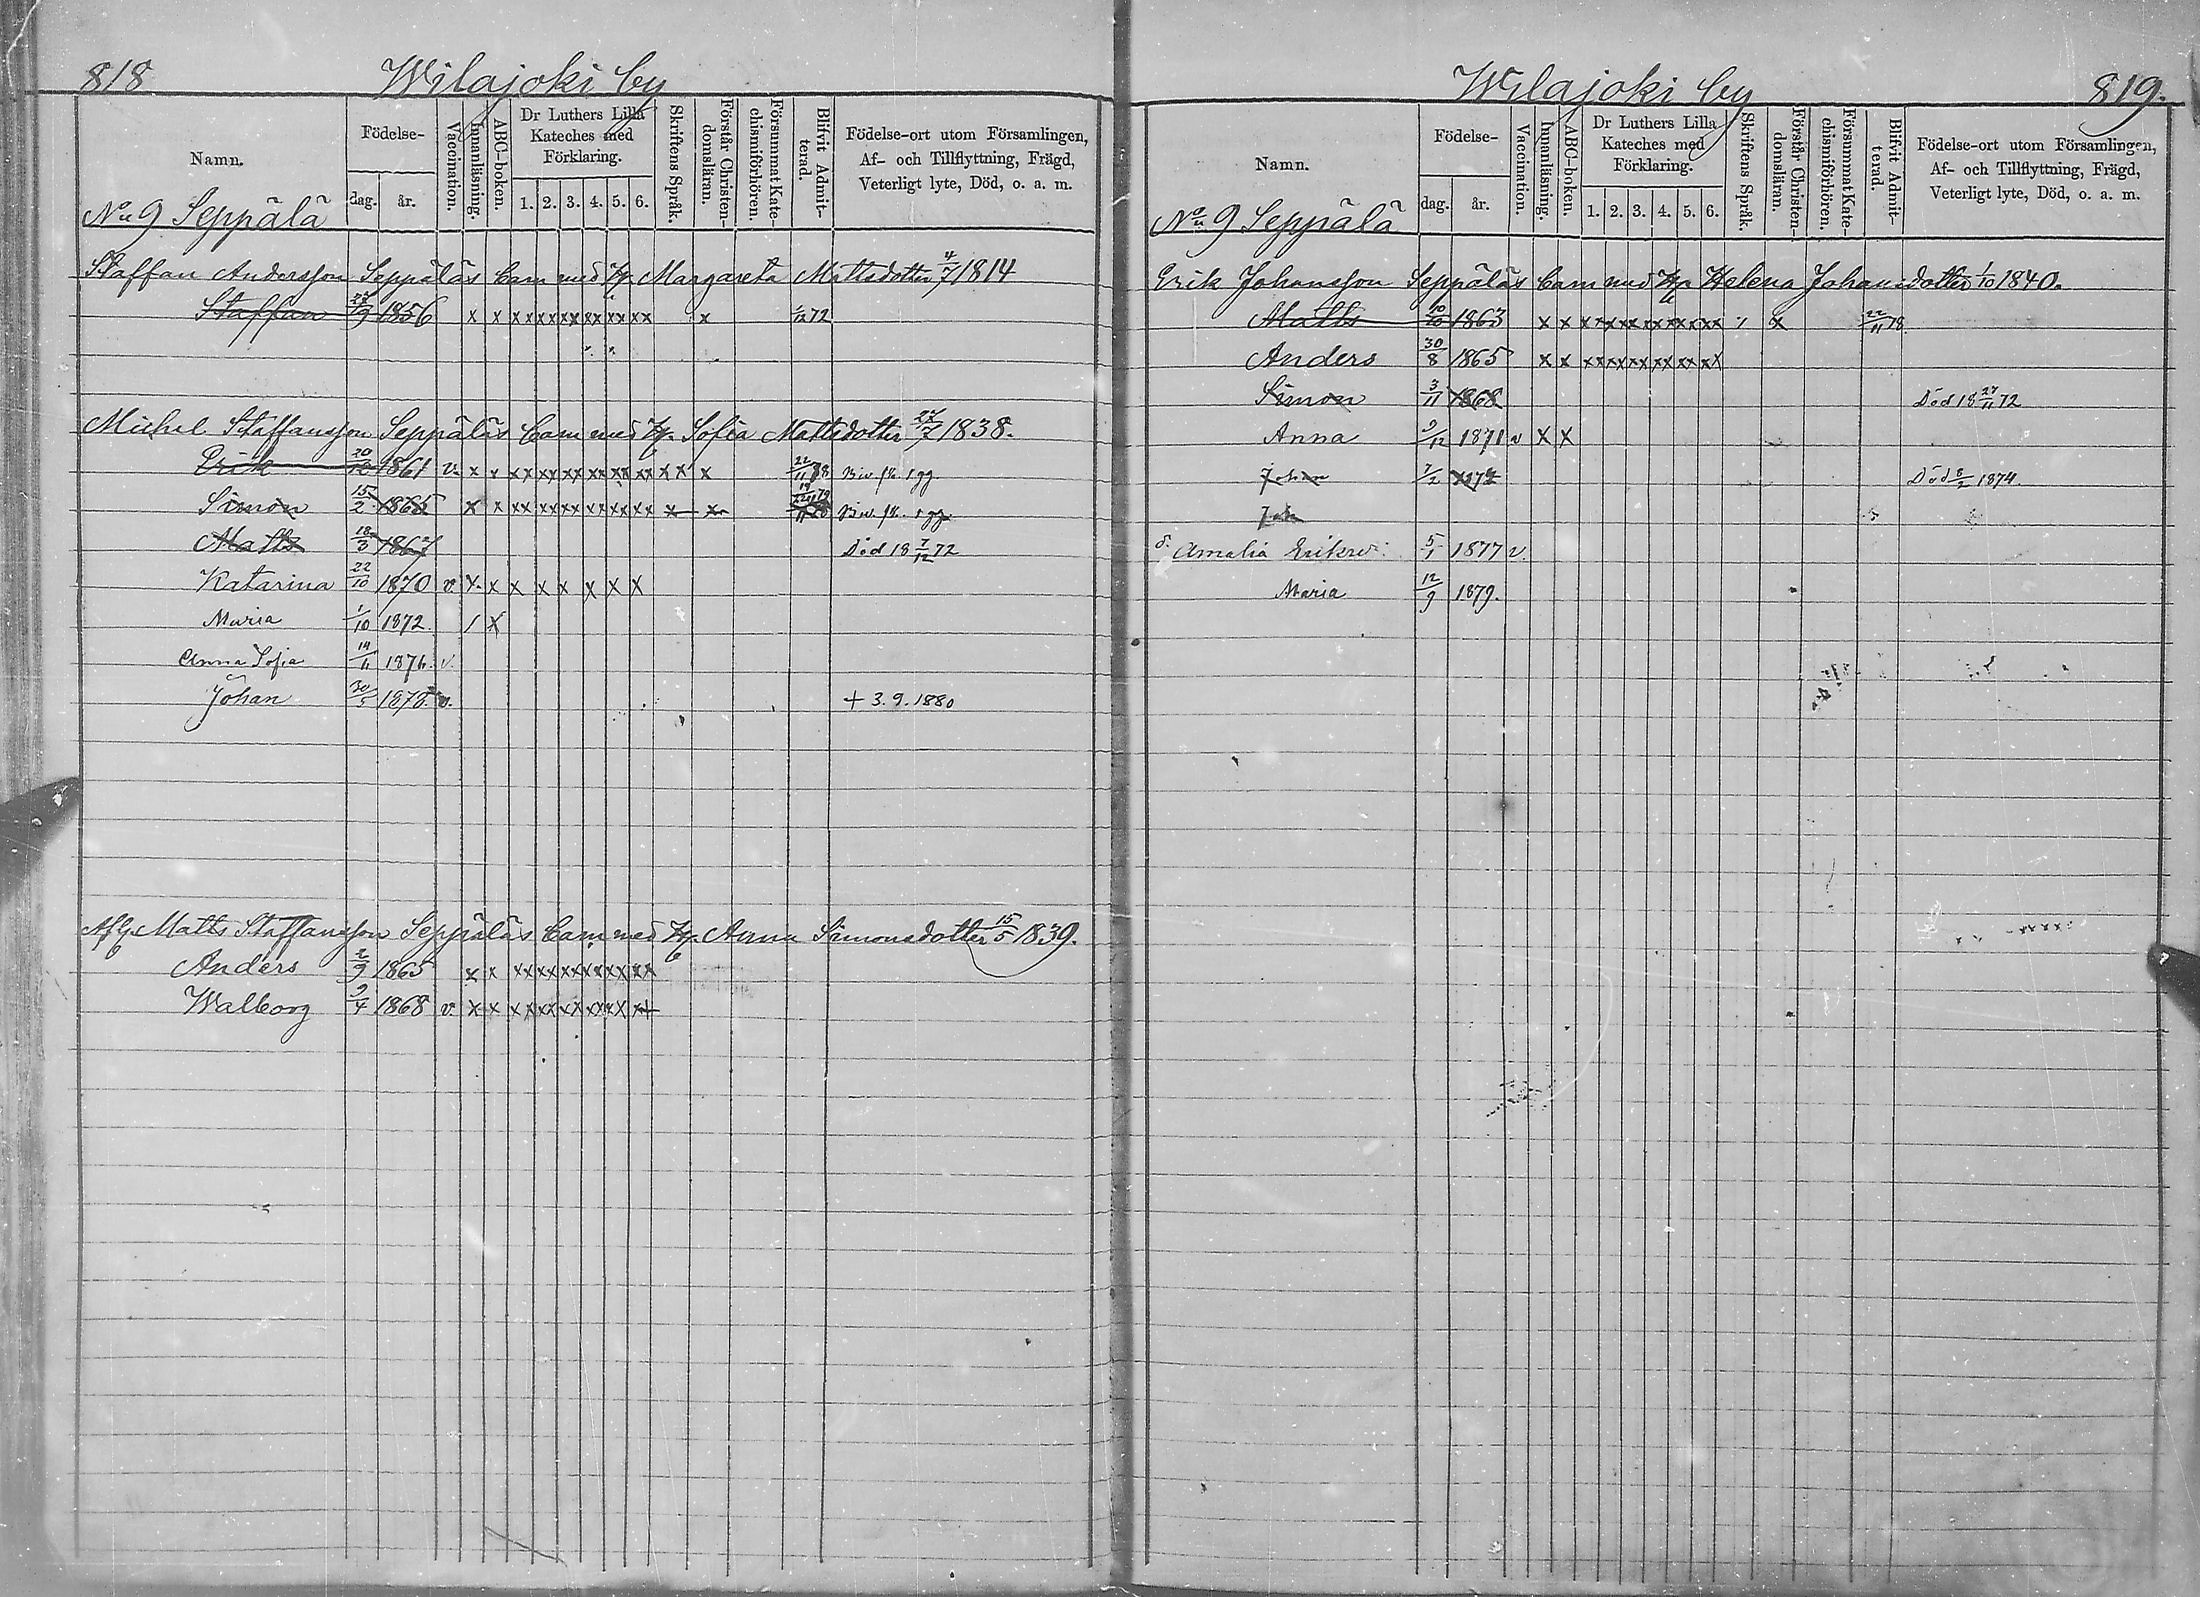 818 Wilajoki by
Namn. Födelse- dag. år. Vaccination. Innanläsning. ABC-boken. Dr Luthers Lilla Kateches med Förklaring. 1. 2. 3. 4. 5. 6. Skriftens Språk. Förstår Christendomsläran. Försummat Katechismiförhören. Blifvit Admitterad. Födelse-ort utom Församlingen, Af- och Tillflyttning, Frägd, Veterligt lyte, Död, o. a. m.
No 9 Seppälä
Staffan Andersson Seppäläs barn med H. Margareta Mattsdotter 4/7 1814
Staffan 1856 x x xx xx xx xx xx xx x /12 72
Michel Staffansson Seppäläs barn med H. Sofia Mattsdotter 27/7 1838.
Erik 20/12 1861 v. x x xx xx xx xx xx xx x x x 22/11 78
Simon 15/2 1865 x x xx xx xx xx xx xx x x
Matts 18/3 1867 Död 18 7/12 72
Katarina 22/10 1870 v. x x x x x x x x
Maria 1/10 1872 / x
Anna Sofia 14/11 1876. v.
Johan 30/5 1878. v. + 3.9.1880
Afl. Matts Staffansson Seppäläs barn med H. Anna Simonsdotter 15/5 1839.
Anders 2/9 1865 x x xx xx xx xx xx xx
Walborg 9/4 1868 v. x x xx xx xx xx xx x+
Wilajoki by 819.
Namn. Födelse- dag. år. Vaccination. Innanläsning. ABC-boken. Dr Luthers Lilla Kateches med Förklaring. 1. 2. 3. 4. 5. 6. Skriftens Språk. Förstår Christendomsläran. Försummat Katechismiförhören. Blifvit Admitterad. Födelse-ort utom Församlingen, Af- och Tillflyttning, Frägd, Veterligt lyte, Död, o. a. m.
No 9 Seppälä
Erik Johansson Seppäläs barn med H. Helena Johansdotter 1/10 1840.
Matts 10/10 1863 x x xx xx xx xx xx xx x 22/11 78
Anders 30/8 1865 x x xx xx xx xx xx xx
Simon 3/11 1868 Död 18 27/11 72
Anna 9/12 1871 v x x
Johan 7/2 Död 8/2 1874.
Joh
d. Amalia Eriksd. 5/1 1877 v.
Maria 12/9 1879.